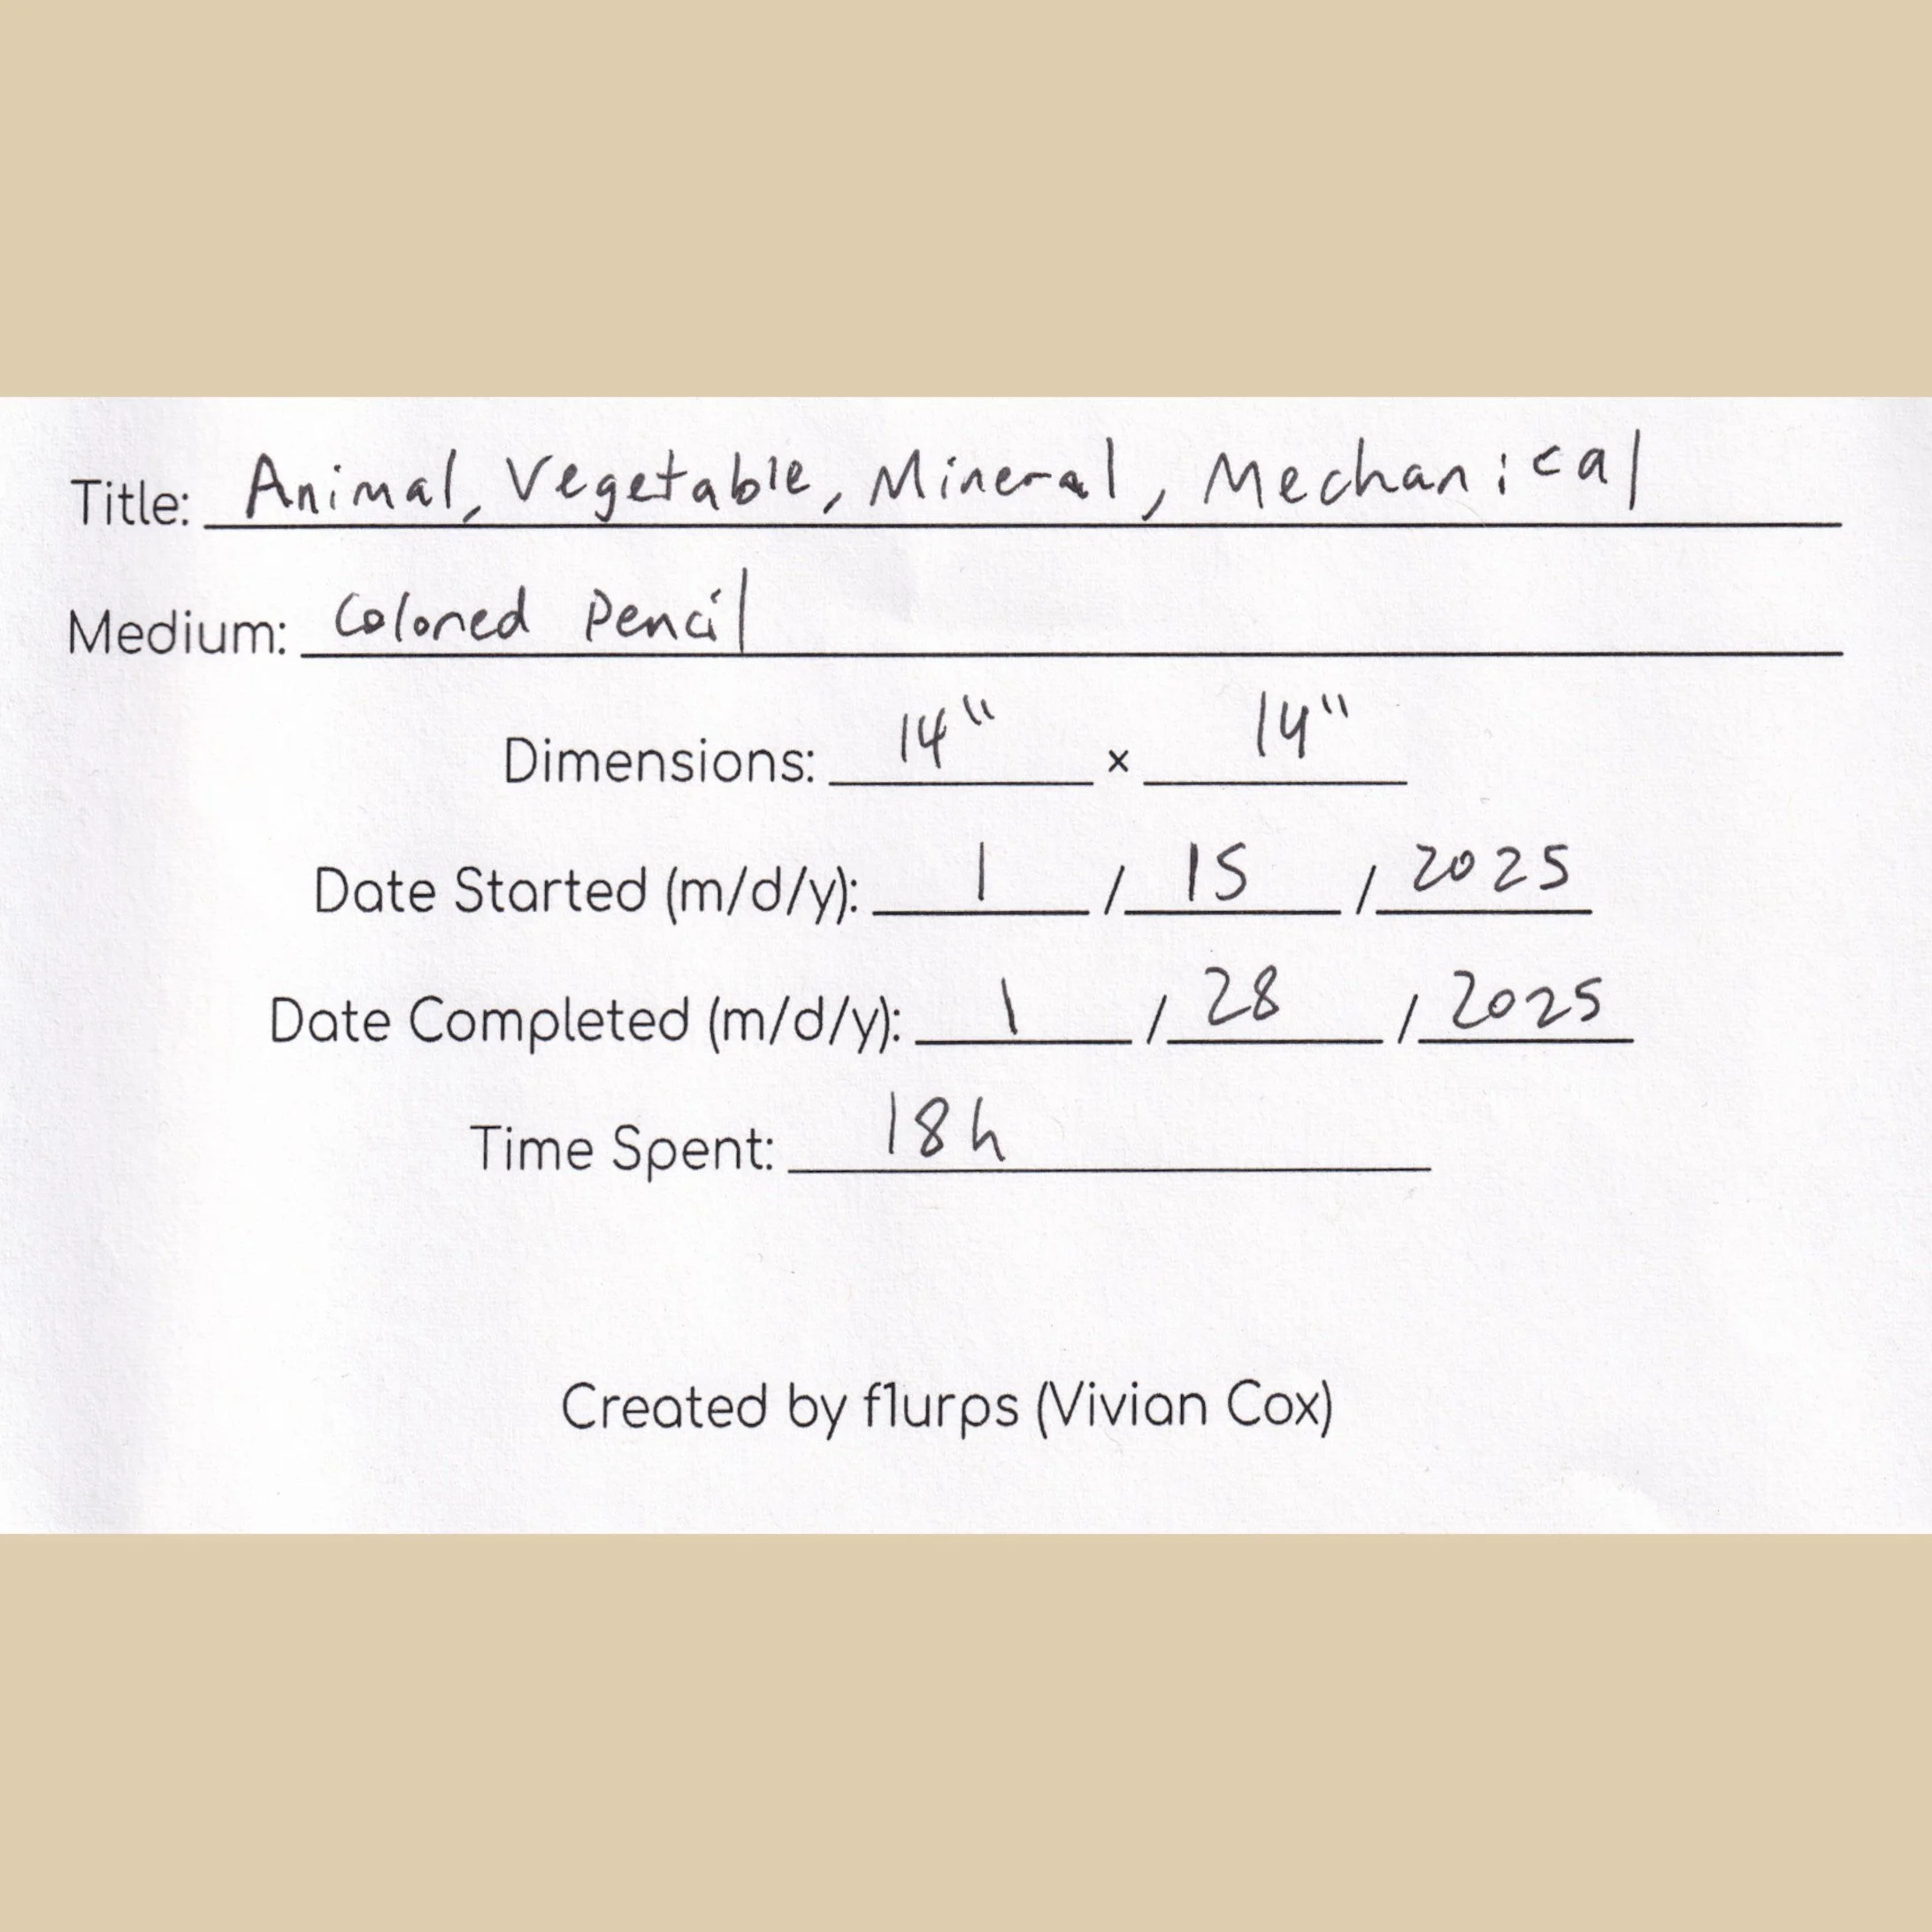 Title: Animal, Vegetable, Mineral, Mechanical
Medium: Colored Pencil
Dimensions: 14" × 14"
Date Started (m/d/y): 1 / 15 / 2025
Date Completed (m/d/y): 1 / 28 / 2025
Time Spent: 18h
Created by f1urps (Vivian Cox)